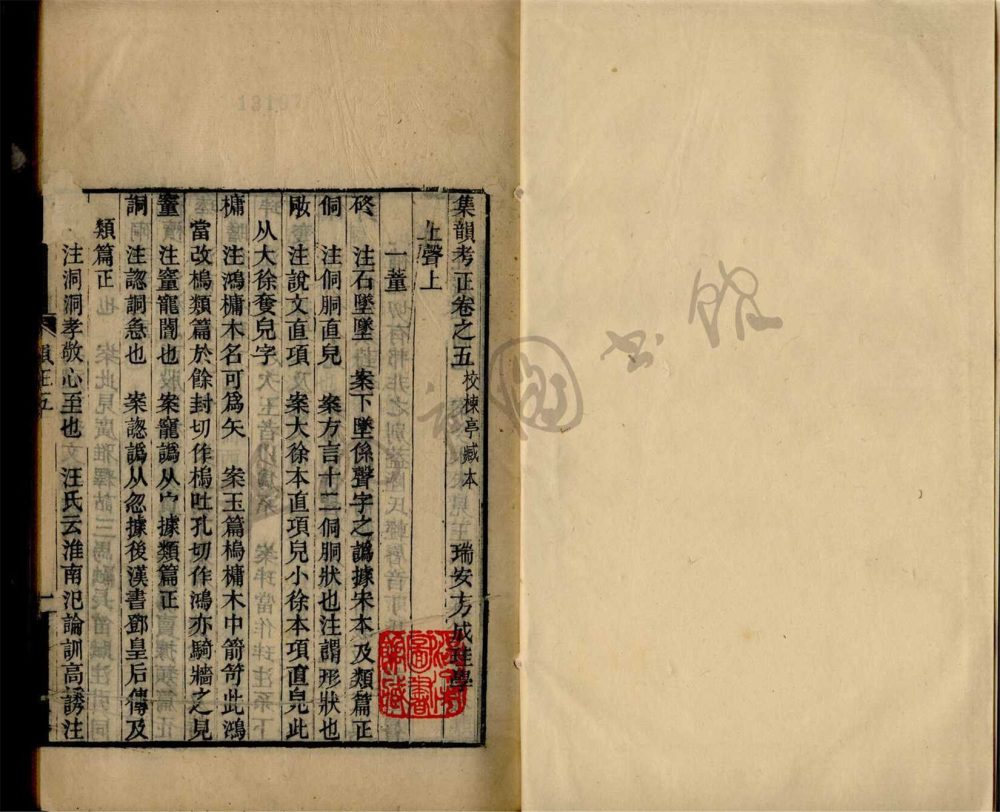 集韻考正卷之五 校楝亭臧本 瑞安方成珪學
上聲上
一董
硿 注石墜墜 案下墜係聲字之譌據宋本及類篇正
侗 注侗胴直皃 案方言十二侗胴狀也注謂形狀也
注說文直項及 案大徐本直項皃小徐本項直皃此
从大徐奪皃字
注鴻槦木名可爲矢 案玉篇槝槦木中箭笴此鴻
當改槝類篇於餘封切作槝吐孔切作鴻亦騎牆之見
注𥨍竉闇也 案竉譌从宀據類篇正
詷 注諰詷急也 案諰譌从忽據後漢書鄧皇后傳及
類篇正
注洞洞孝敬心至也 汪氏云淮南氾論訓高誘注
圖書
13197